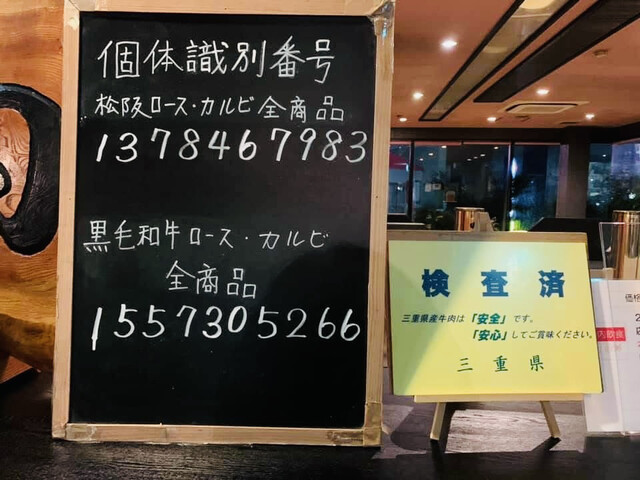 個体識別番号
松阪ロース・カルビ全商品
1378467983
黒毛和牛ロース・カルビ
全商品
1557305266
検査済
三重県産牛肉は「安全」です。
「安心」してご賞味ください。
三重県
価格